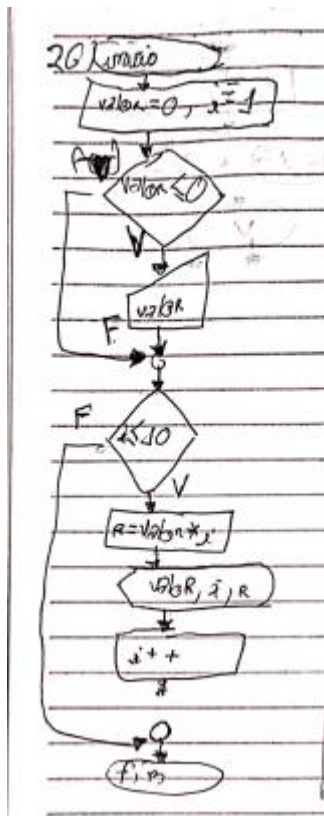 20) início
valor = 0, i = 1
valor ≤ 0
V
valor
F
F
i ≤ 10
V
R = valor * i
valor, i, R
i + +
fim